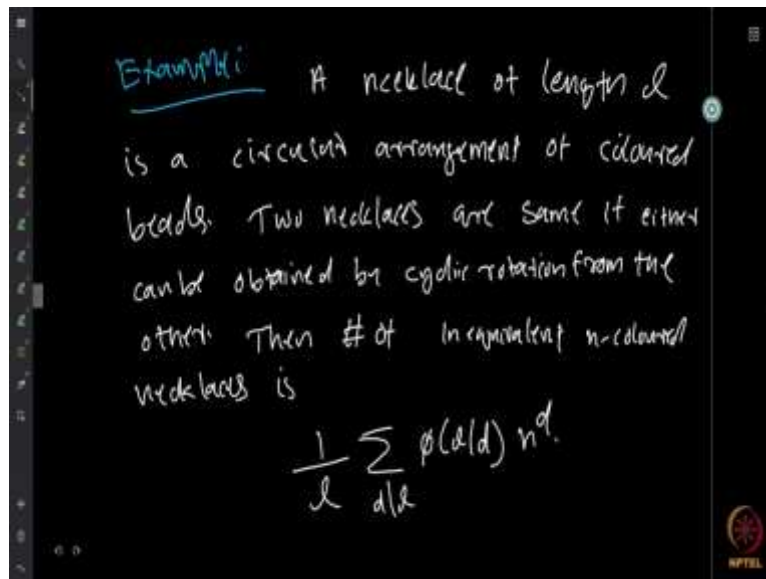 Example:  A necklace of length l
is a circular arrangement of coloured
beads. Two necklaces are same if either
can be obtained by cyclic rotation from the
other. Then # of inequivalent n-coloured
necklaces is
1/l ∑_{d|l} φ(l/d) n^d.
NPTEL